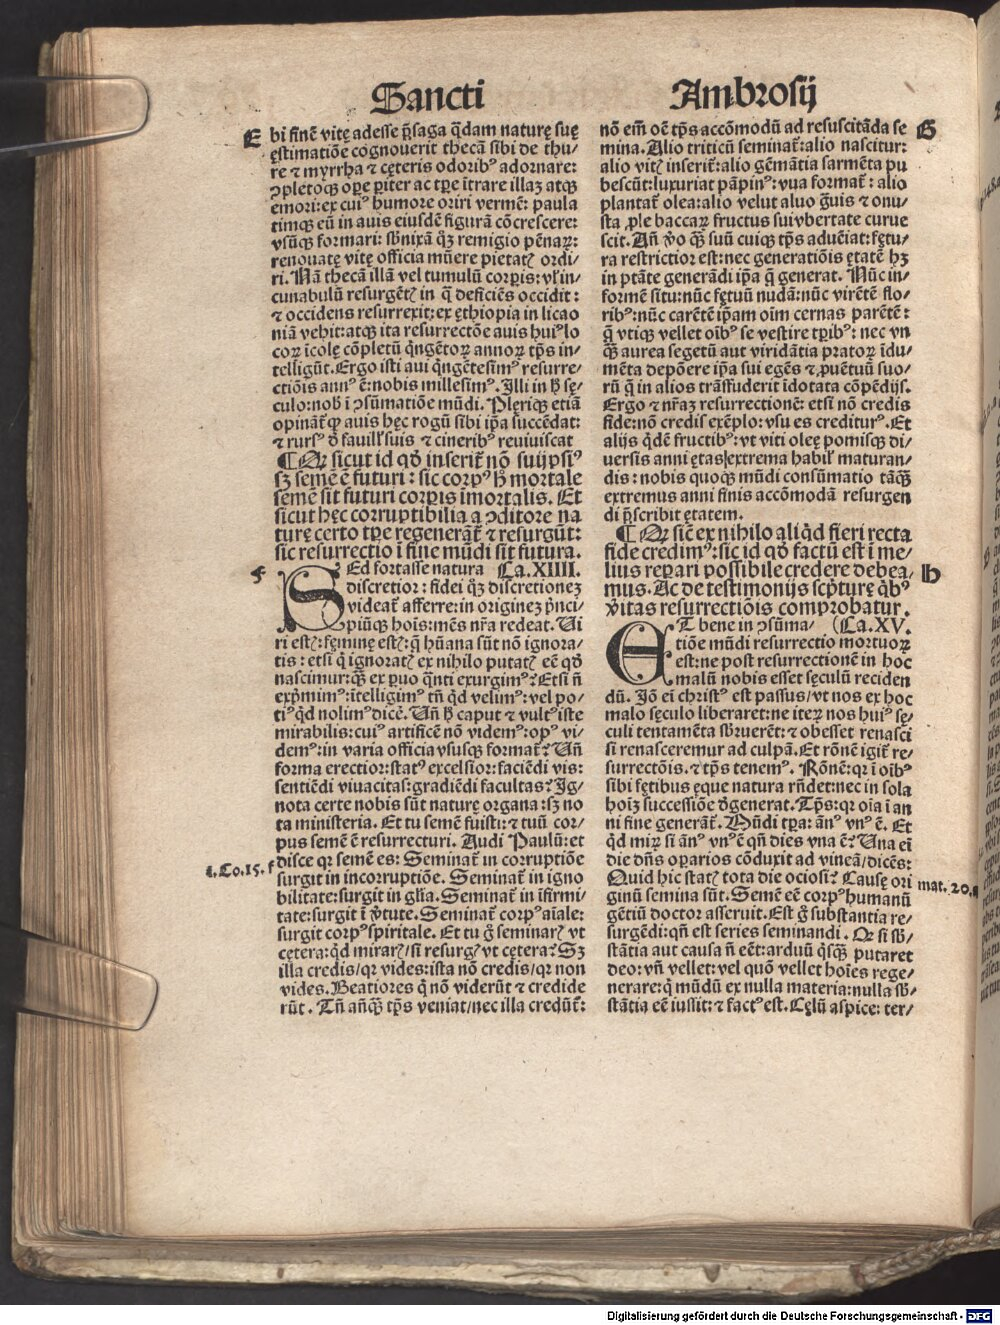 Sancti Ambrosij
E
bi finē vitę adesse p̄saga q̄dam naturę suę
ęstimatiōe cognouerit thecā sibi de thu/
re ⁊ myrrha ⁊ cęteris odoribꝰ adornare:
ꝯpletoqꝫ oꝑe ꝑiter ac tꝑe ītrare illaꝫ atqꝫ
emori: ex cuiꝰ humore oriri vermē: paula
timqꝫ eū in auis eiusdē figurā cōcrescere:
vsūqꝫ formari: sb̄nixā qͦꝫ remigio pēnaꝝ:
renouatę vitę officia mūere pietatꝭ ordi/
ri. Nā thecā illā vel tumulū corꝑis: vl' in/
cunabulū resurgētꝭ in q̄ deficiēs occidit:
⁊ occidens resurrexit: ex ęthiopia in licao
niā vehit: atqꝫ ita resurrectōe auis huiꝰ lo
coꝝ īcolę cōpletū qͥngētoꝝ annoꝝ tp̄s in/
telligūt. Ergo isti aui qͥngētesimꝰ resurre/
ctiōis annꝰ ē: nobis millesimꝰ. Illi in h̄ sę/
culo: nob̄ ī ꝯsūmatiōe mūdi. Plęriqꝫ etiā
opināt᷑ qꝫ auis hęc rogū sibi ip̄a succēdat:
⁊ rursꝰ d̄ fauill' suis ⁊ cineribꝰ reuiuiscat
¶ Qꝛ sicut id qd̓ inserit᷑ nō suijpsiꝰ
sꝫ semē ē futuri: sic corpꝰ h̄ mortale
semē sit futuri corꝑis imortalis. Et
sicut hęc corruptibilia a ꝯditore na
turę certo tꝑe regenerāt᷑ ⁊ resurgūt:
sic resurrectio ī fine mūdi sit futura.
F
SEd fortasse natura Ca. XIIII.
discretior: fidei qͦꝫ discretionez
videat᷑ afferre: in originez pͥnci/
piūqꝫ hoīs: mēs nr̄a redeat. Ui
ri estꝭ: fęminę estꝭ: q̄ hūana sūt nō ignora/
tis: etsi q̄ ignoratꝭ ex nihilo putatꝭ eē qd̓
nascimur: qͣꝫ ex ꝑuo qͣnti exurgimꝰ? Etsi n̄
exp̄mimꝰ: ītelligimꝰ tn̄ qͥd velimꝰ: vel po/
tiꝰ qͥd nolimꝰ dicē. Un̄ h̄ caput ⁊ vultꝰ iste
mirabilis: cuiꝰ artificē nō videmꝰ: opꝰ vi/
demꝰ: in varia officia vsusqꝫ format᷑? Un̄
forma erectior: statꝰ excelsior: faciēdi vis:
sentiēdi viuacitas: gradiēdi facultas? Ig/
nota certe nobis sūt naturę organa: sꝫ no
ta ministeria. Et tu semē fuisti: ⁊ tuū cor/
pus semē ē resurrecturi. Audi Paulū: et
1. Co. 15. f
disce qꝛ semē es: Seminat᷑ in corruptiōe
surgit in incorruptiōe. Seminat᷑ in igno
bilitate: surgit in gl̄ia. Seminat᷑ in īfirmi/
tate: surgit ī v̓tute. Seminat᷑ corpꝰ aīale:
surgit corpꝰ spiritale. Et tu g̊ seminarꝭ vt
cętera: qͥd mirarꝭ/ si resurgꝭ vt cętera? Sꝫ
illa credis/ qꝛ vides: ista nō credis/ qꝛ non
vides. Beatiores q̄ nō viderūt ⁊ credide
rūt. Tn̄ an̄qͣꝫ tp̄s veniat/ nec illa credūt᷑:
G
nō em̄ oē tp̄s accōmodū ad resuscitāda se
mina. Alio triticū seminat᷑: alio nascitur:
alio vitꝭ inserit᷑: alio gēmātia sarmēta pu
bescūt: luxuriat pāpinꝰ: vua format᷑: alio
plantat᷑ olea: alio velut aluo g̓uis ⁊ onu/
sta ꝓle baccaꝝ fructus sui vbertate curue
scit. An̄ v̓o qͣꝫ suū cuiqꝫ tp̄s aduēiat: fętu/
ra restrictior est: nec generatiōis ętatē hꝫ
in ptāte generādi ip̄a q̄ generat. Nūc in/
formē situ: nūc fętuū nudā: nūc virētē flo/
ribꝰ: nūc carētē ip̄am oīm cernas parētē:
q̄ vtiqꝫ vellet oībꝰ se vestire tꝑibꝰ: nec vn
qͣꝫ aurea segetū aut viridātia pratoꝝ īdu/
mēta depōere ip̄a sui egēs ⁊ ꝓuētuū suo/
rū q̄ in alios trāsfuderit īdotata cōpēdijs.
Ergo ⁊ nr̄aꝫ resurrectionē: etsi nō credis
fide: nō credis exēplo: vsu es crediturꝰ. Et
alijs qͥdē fructibꝰ: vt viti oleę pomisqꝫ di/
uersis anni ętas extrema habil' maturan/
dis: nobis quoqꝫ mūdi consūmatio tāqͣꝫ
extremus anni finis accōmodā resurgen
di p̄scribit ętatem.
¶ Qꝛ sic̄ ex nihilo aliqͥd fieri recta
fide credimꝰ: sic id qd̓ factū est ī me/
H
lius reꝑari possibile credere debea/
mus. Ac de testimonijs scp̄turę qͥbꝰ
v̓itas resurrectiōis comprobatur.
ET bene in ꝯsūma/ (Ca. XV.
tiōe mūdi resurrectio mortuoꝝ
est: ne post resurrectionē in hoc
malū nobis esset sęculū reciden
dū. Iō em̄ christꝰ est passus/ vt nos ex hoc
malo sęculo liberaret: ne iteꝝ nos huiꝰ sę/
culi tentamēta sb̄uerēt: ⁊ obesset renasci
si renasceremur ad culpā. Et rōnē igit᷑ re/
surrectōis. ⁊ tp̄s tenemꝰ. Rōnē: qꝛ ī oībꝰ
sibi fętibus ęque natura rn̄det: nec in sola
hoīꝫ successiōe d̓generat. Tp̄s: qꝛ oīa ī an
ni fine generāt᷑. Mūdi tꝑa: ānꝰ vnꝰ ē. Et
qͥd miꝝ si ānꝰ vnꝰ ē qn̄ dies vna ē? Una em̄
die dn̄s oꝑarios cōduxit ad vineā/ dicēs:
mat. 20. a
Quid hic statꝭ tota die ociosi? Causę ori
ginū semina sūt. Semē eē corpꝰ humanū
gētiū doctor asseruit. Est g̊ substantia re/
surgēdi: qn̄ est series seminandi. Qꝛ si sb̄/
stātia aut causa n̄ eēt: arduū qͥsqͣꝫ putaret
deo: vn̄ vellet: vel quō vellet hoīes rege/
nerare: q̄ mūdū ex nulla materia: nulla sb̄/
stātia eē iussit: ⁊ factꝰ est. Cęlū aspice: ter/
Digitalisierung gefördert durch die Deutsche Forschungsgemeinschaft - DFG